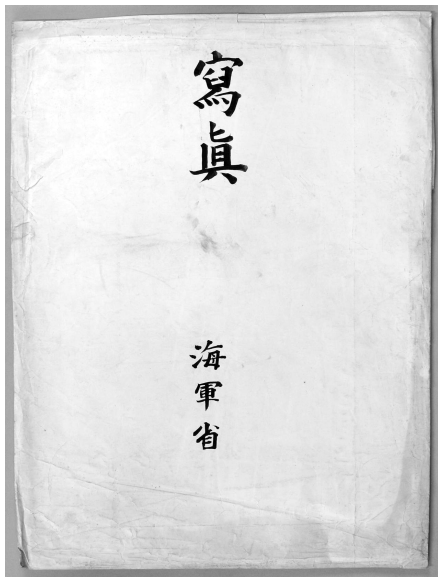 寫眞
海軍省